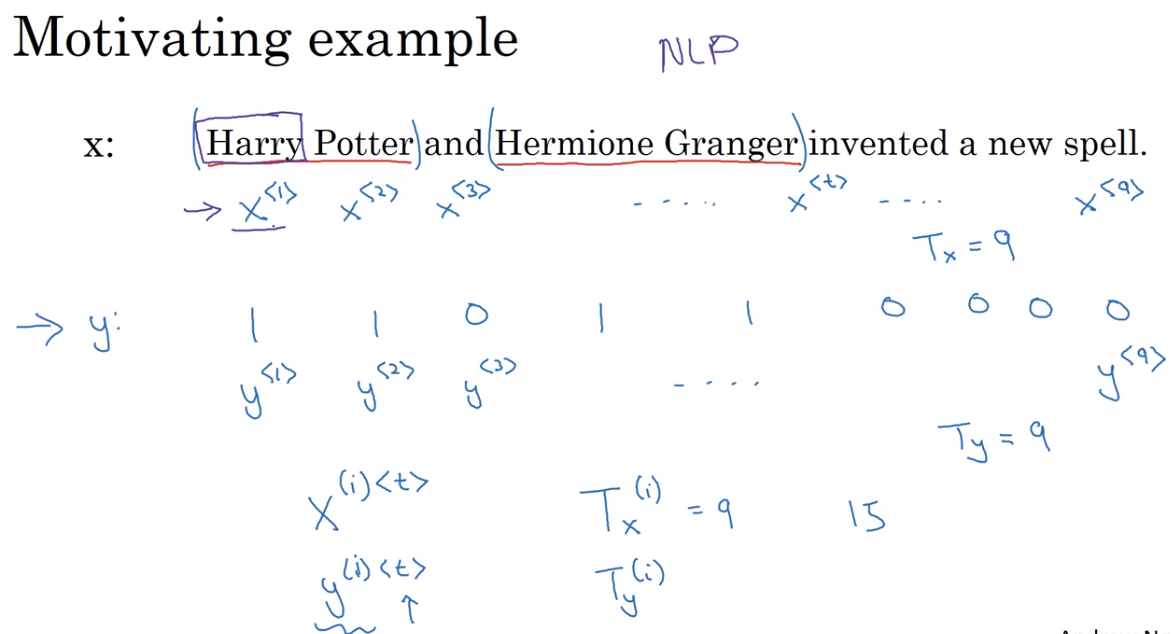 Motivating example
NLP
x: (Harry Potter) and (Hermione Granger) invented a new spell.
→ x<1> x<2> x<3> ..... x<t> .... x<9>
Tx = 9
→ y: 1 1 0 1 1 0 0 0 0
y<1> y<2> y<3> ..... y<9>
Ty = 9
X(i)<t> Tx(i) = 9 15
y(i)<t> Ty(i)
↑